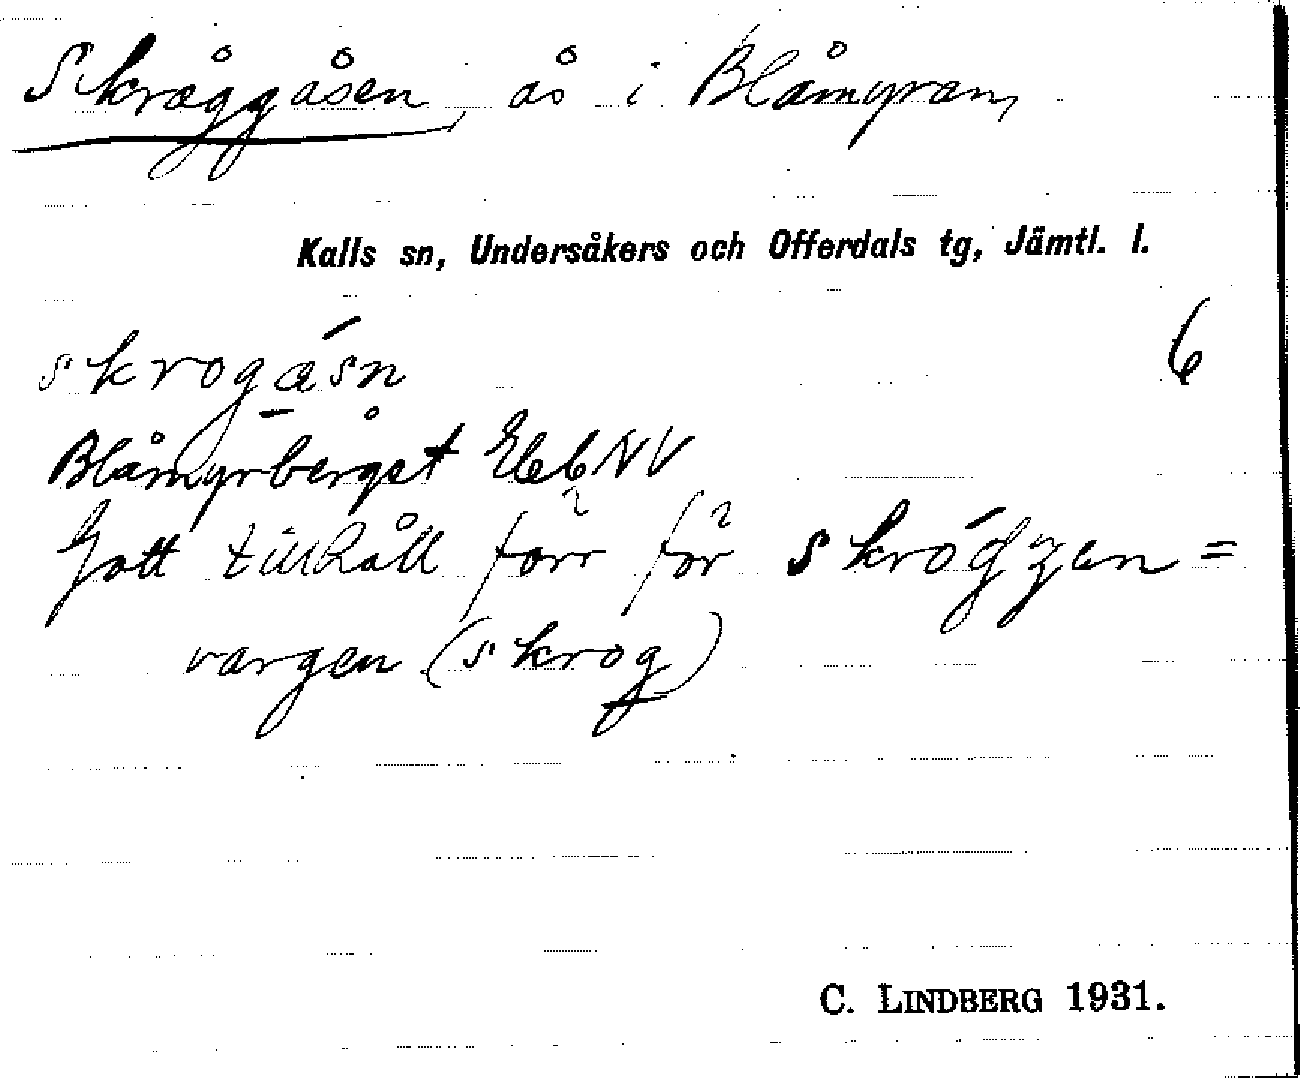 Skråggåsen, ås i Blåmyran,
Kalls sn, Undersåkers och Offerdals tg, Jämtl. l.
skrogåsn 6
Blåmyrberget
Gott tillhåll förr för skróggen =
vargen (skrog)
C. LINDBERG 1931.